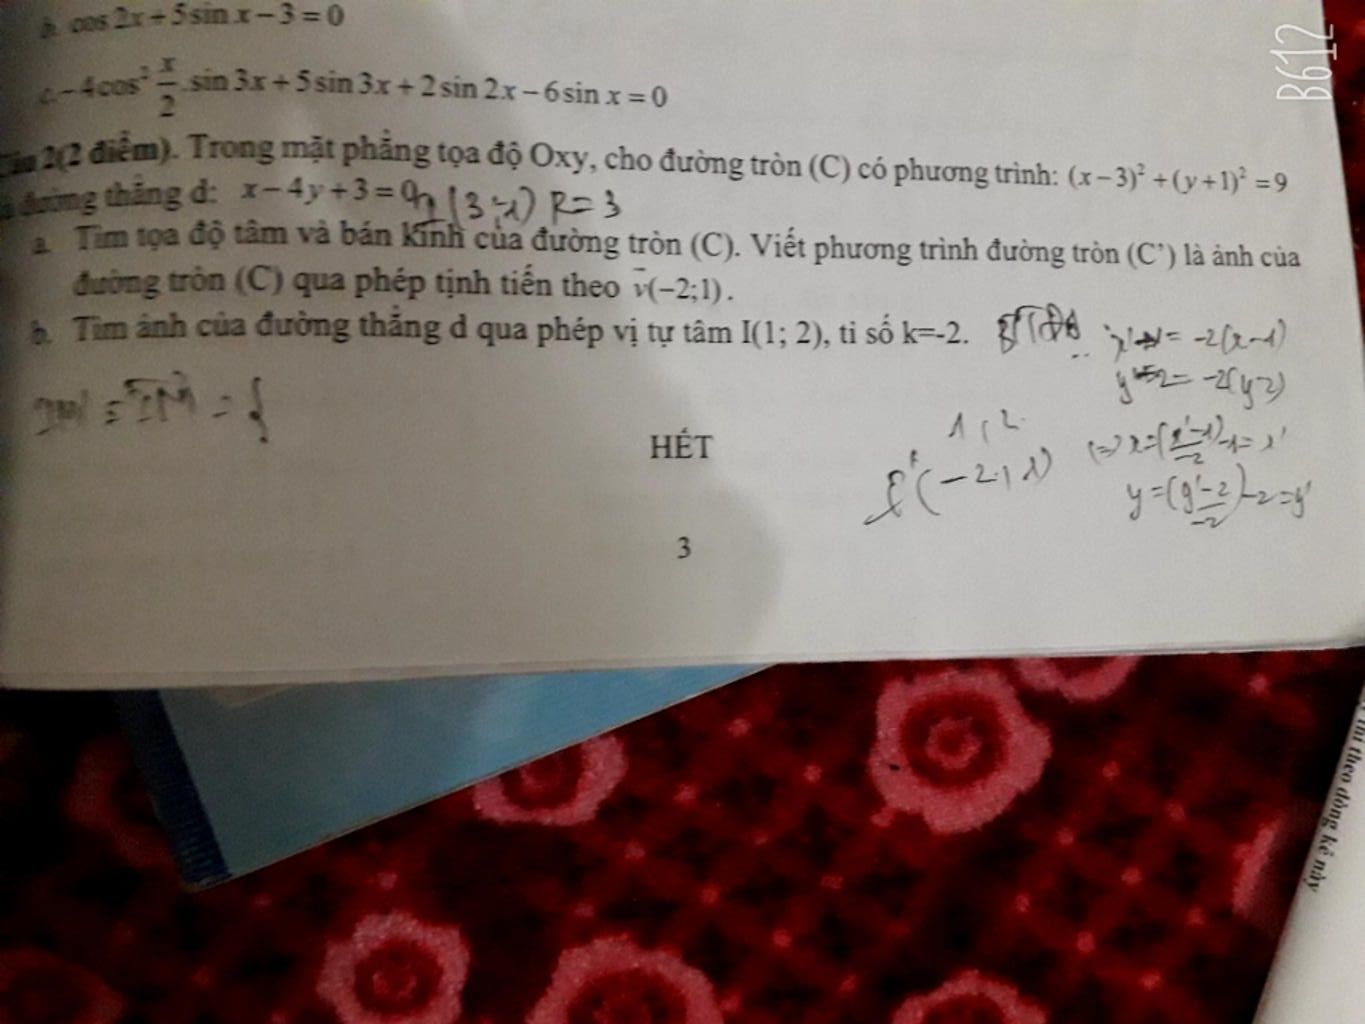 b. cos 2x + 5 sin x − 3 = 0
c. −4cos² x/2 .sin 3x + 5 sin 3x + 2 sin 2x − 6 sin x = 0
2(2 điểm). Trong mặt phẳng tọa độ Oxy, cho đường tròn (C) có phương trình: (x−3)² + (y+1)² = 9
đường thẳng d: x − 4y + 3 = 0 (3;-1) R=3
a. Tìm tọa độ tâm và bán kính của đường tròn (C). Viết phương trình đường tròn (C’) là ảnh của
đường tròn (C) qua phép tịnh tiến theo v(−2;1).
b. Tìm ảnh của đường thẳng d qua phép vị tự tâm I(1; 2), tỉ số k=-2.
= -2(x-1)
= -2(y-2)
1; 2
HẾT
(-2;1)
3
B612
theo dòng kẻ này